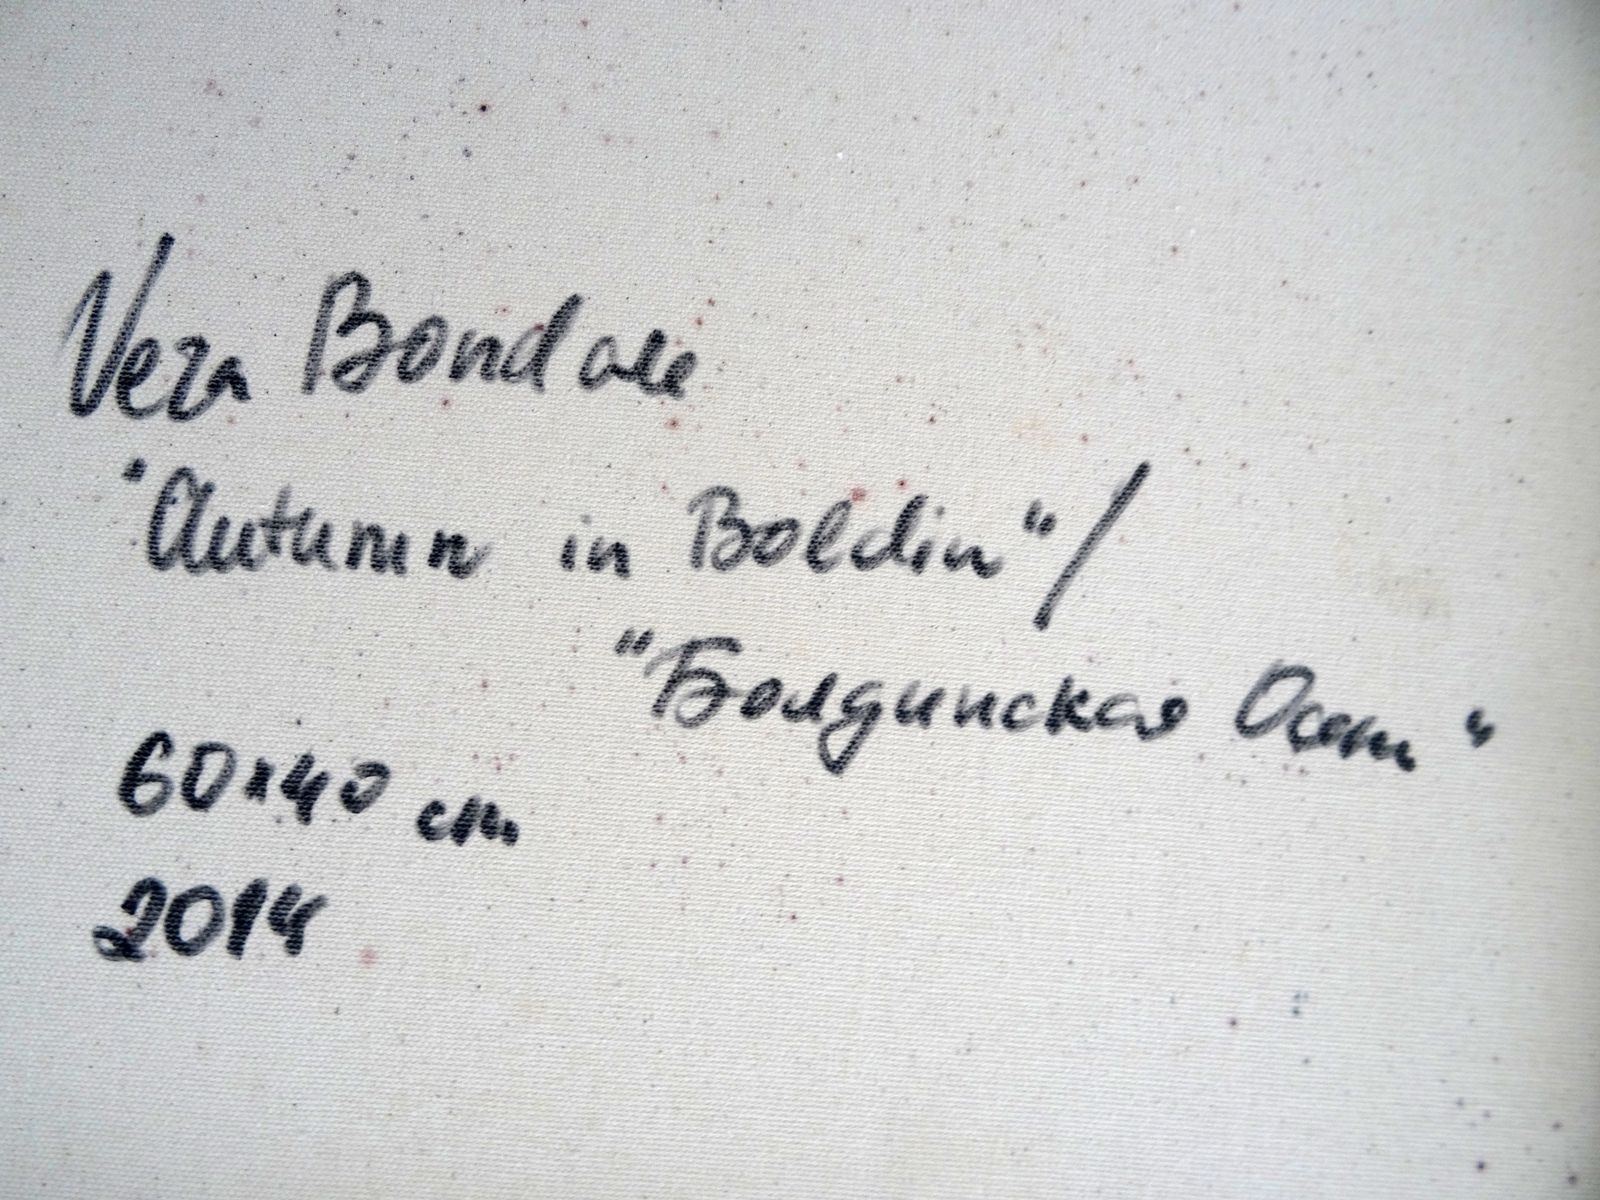 Vera Bondare
"Autumn in Boldin" /
"Болдинская Осень"
60x40 cm
2014